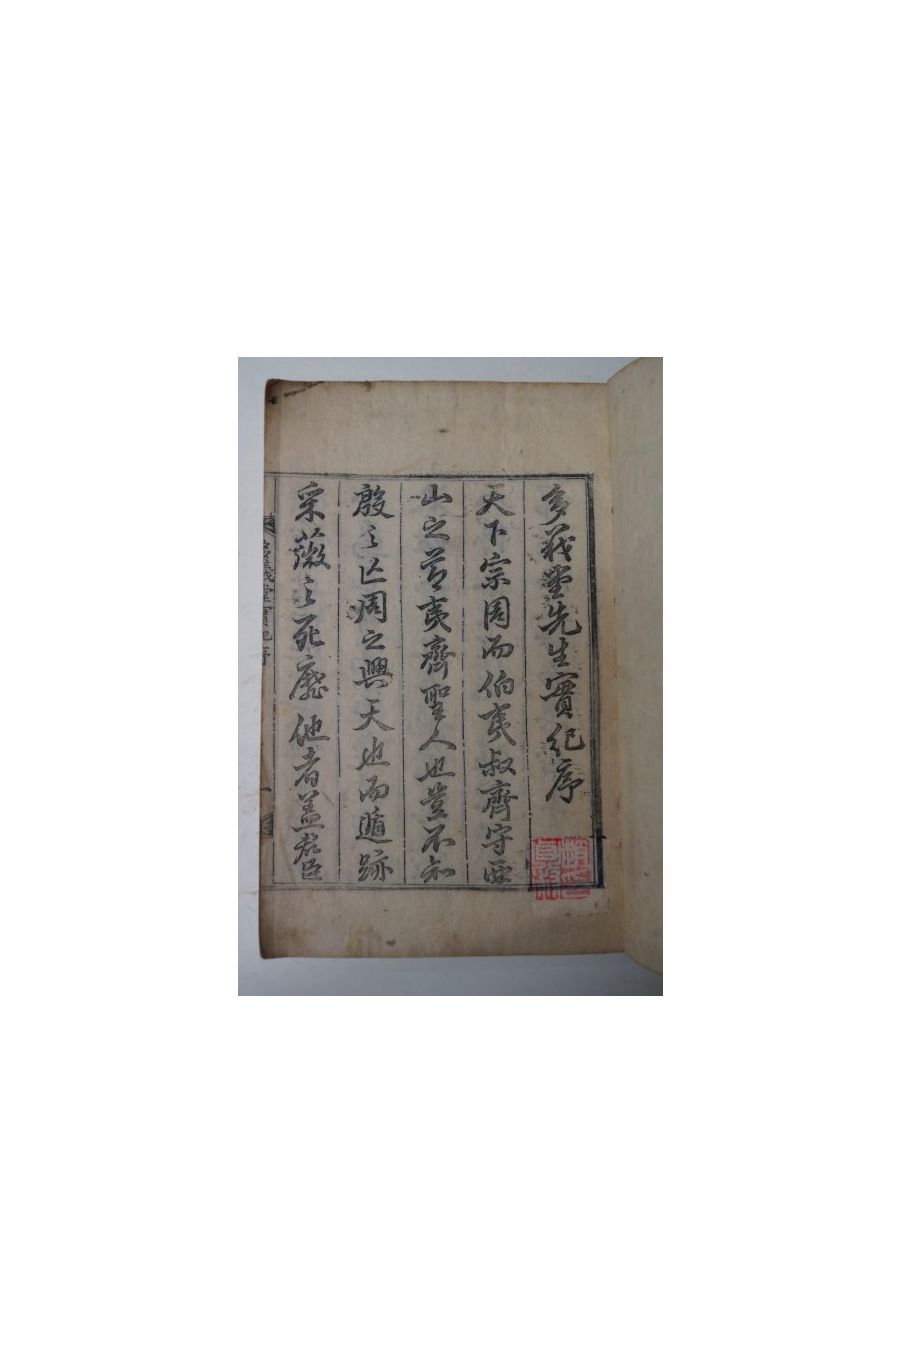 多義堂先生實紀序
天下宗周而伯夷叔齊守西
山之節夷齊聖人也豈不知
殷之亡周之興天也而遯跡
采薇之死靡他者盖君臣
多義堂實紀序 一